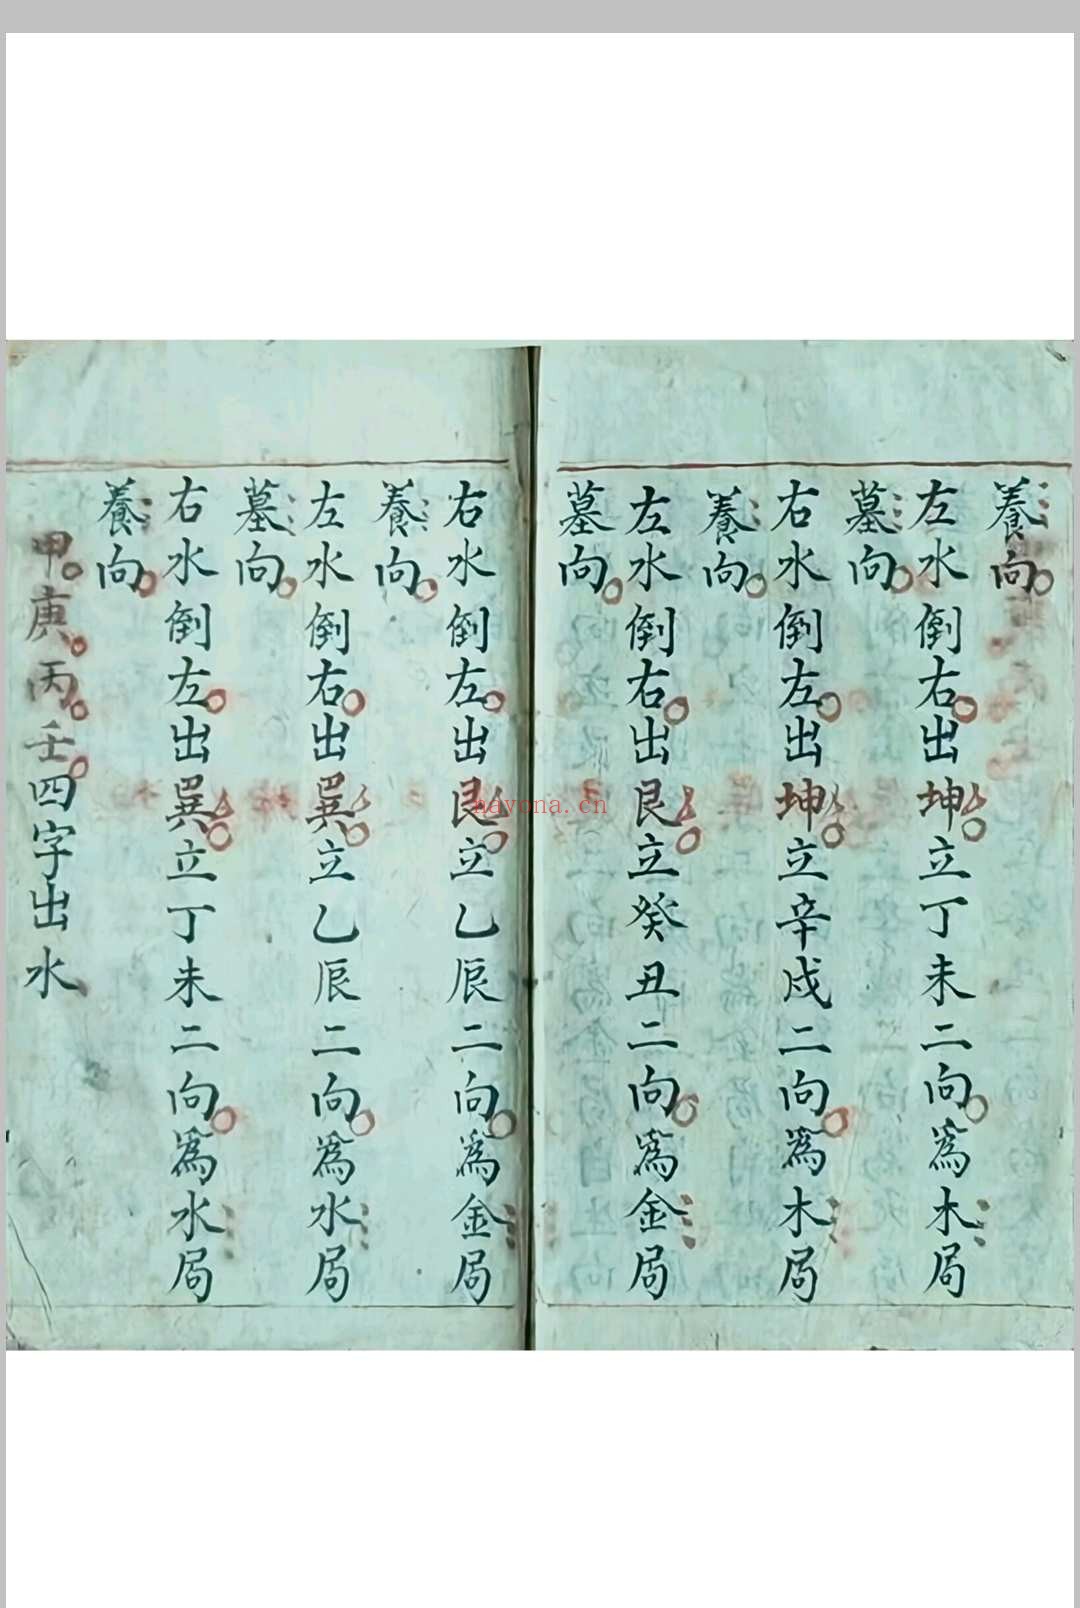 養向
左水倒右出坤立丁未二向為木局
墓向
右水倒左出坤立辛戌二向為木局
養向
左水倒右出艮立癸丑二向為金局
墓向
右水倒左出艮立乙辰二向為金局
養向
左水倒右出巽立乙辰二向為水局
墓向
右水倒左出巽立丁未二向為水局
養向
甲庚丙壬四字出水
nayona.cn